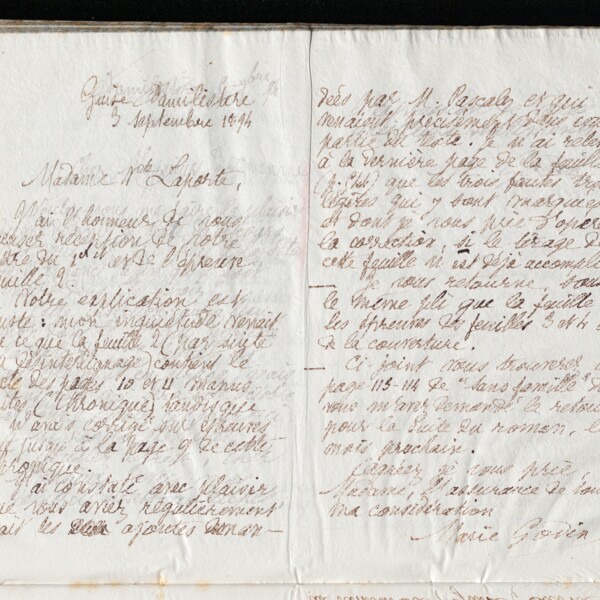 Guise Familistère
3 Septembre 1894
Madame Vve Laporte,
J'ai l'honneur de vous
accuser réception de votre
lettre du 1er et de l'épreuve
feuille 2.
Votre explication est
juste : mon inquiétude venait
de ce que la feuille 2 (par suite
du désinterlignage) contient le
texte des pages 10 et 11 manus
crites (Chronique) tandis que
je n'avais corrigé sur épreuves
que jusqu'à la page 9 de cette
chronique.
J'ai constaté avec plaisir
que vous avez régulièrement
fait les ajoutés deman-
dés par M. Pascaly et qui
venaient précisément dans cette
partie du texte. Je n'ai relevé
à la dernière page de la feuille
que les trois fautes très
légères qui y sont marquées
et dont je vous prie d'opérer
la correction, si le tirage de
cette feuille n'est déjà accompli.
— Je vous retourne, sous
le même pli que la feuille
les épreuves des feuilles 3 et 4
de la couverture.
— Ci-joint vous trouverez
page 113-114 de "Sans famille"
vous m'avez demandé le retour
pour la suite du roman, le
mois prochain.
Agréez je vous prie
Madame, l'assurance de toute
ma considération
Marie Godin